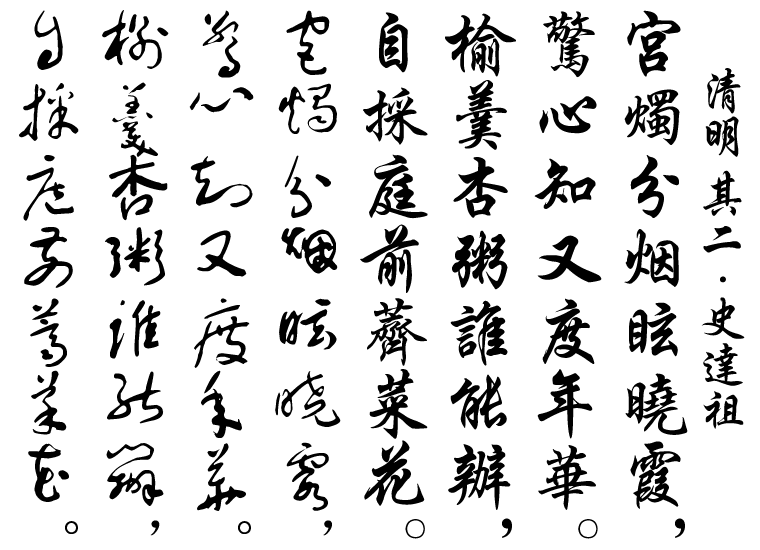 清明其二·史達祖
宮燭分烟眩曉霞,
驚心知又度年華。
榆羹杏粥誰能辦,
自採庭前薺菜花。
宮燭分烟眩曉霞,
驚心知又度年華。
榆羹杏粥誰能辦,
自採庭前薺菜花。